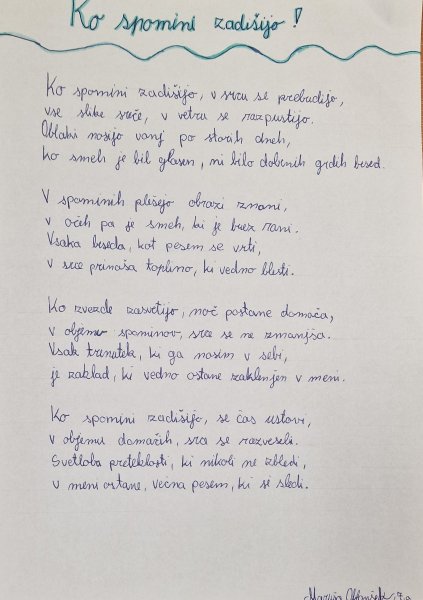 Ko spomini zadišijo!
Ko spomini zadišijo, v srcu se prebudijo,
vse slike sreče, v vetru se razpustijo.
Oblaki nosijo vonj po starih dneh,
ko smeh je bil glasen, ni bilo dobenih grdih besed.
V spominih plešejo obrazi znani,
v očeh pa je smeh, ki je brez rani.
Vsaka beseda, kot pesem se vrti,
v srce prinaša toplino, ki vedno blesti.
Ko zvezde zasvetijo, noč postane domača,
v objemu spominov, srce se ne zmanjša.
Vsak trenutek, ki ga nosim v sebi,
je zaklad, ki vedno ostane zaklenjen v meni.
Ko spomini zadišijo, se čas ustavi,
v objemu domačih, srca se razveseli.
Svetloba preteklosti, ki nikoli ne zbledi,
v meni ostane, večna pesem, ki si sledi.
Maruša